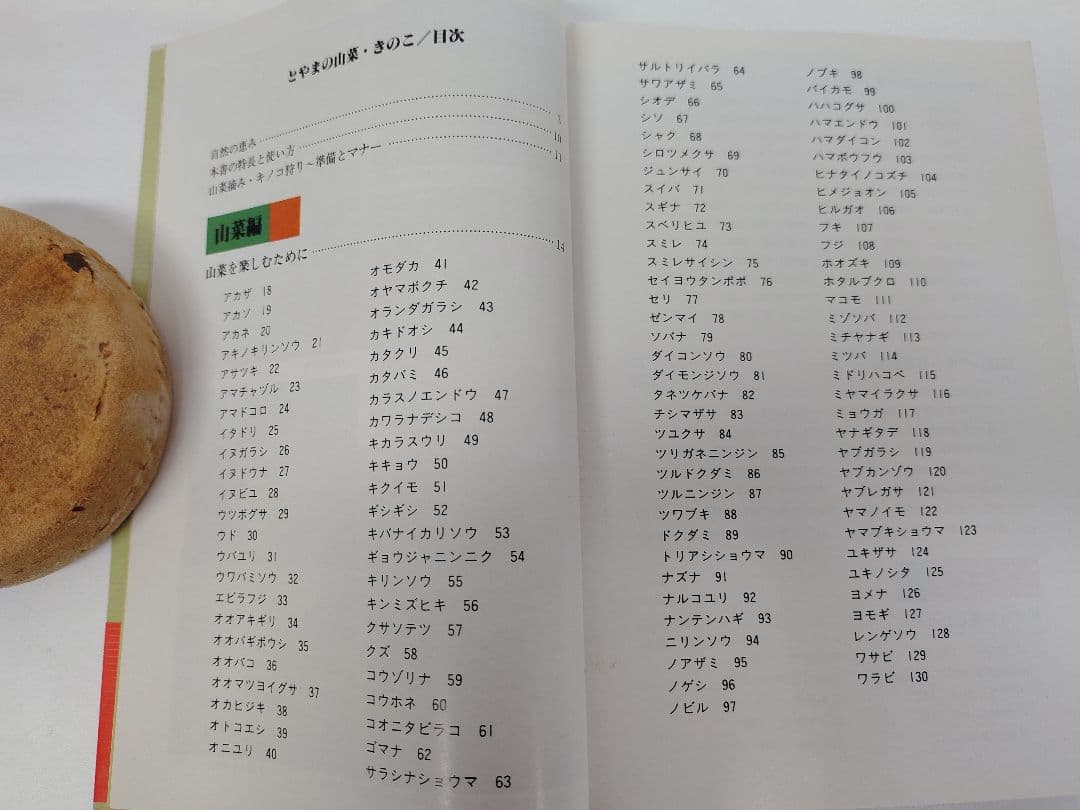 とやまの山菜・きのこ／目次
自然の恵み
本書の特長と使い方 10
山菜摘み・キノコ狩り～準備とマナー 11
山菜編
山菜を楽しむために 14
アカザ 18
アカソ 19
アカネ 20
アキノキリンソウ 21
アサツキ 22
アマチャヅル 23
アマドコロ 24
イタドリ 25
イヌガラシ 26
イヌドウナ 27
イヌビユ 28
ウツボグサ 29
ウド 30
ウバユリ 31
ウワバミソウ 32
エビラフジ 33
オオアキギリ 34
オオバギボウシ 35
オオバコ 36
オオマツヨイグサ 37
オカヒジキ 38
オトコエシ 39
オニユリ 40
オモダカ 41
オヤマボクチ 42
オランダガラシ 43
カキドオシ 44
カタクリ 45
カタバミ 46
カラスノエンドウ 47
カワラナデシコ 48
キカラスウリ 49
キキョウ 50
キクイモ 51
ギシギシ 52
キバナイカリソウ 53
ギョウジャニンニク 54
キリンソウ 55
キンミズヒキ 56
クサソテツ 57
クズ 58
コウゾリナ 59
コウホネ 60
コオニタビラコ 61
ゴマナ 62
サラシナショウマ 63
サルトリイバラ 64
サワアザミ 65
シオデ 66
シソ 67
シャク 68
シロツメクサ 69
ジュンサイ 70
スイバ 71
スギナ 72
スベリヒユ 73
スミレ 74
スミレサイシン 75
セイヨウタンポポ 76
セリ 77
ゼンマイ 78
ソバナ 79
ダイコンソウ 80
ダイモンジソウ 81
タネツケバナ 82
チシマザサ 83
ツユクサ 84
ツリガネニンジン 85
ツルドクダミ 86
ツルニンジン 87
ツワブキ 88
ドクダミ 89
トリアシショウマ 90
ナズナ 91
ナルコユリ 92
ナンテンハギ 93
ニリンソウ 94
ノアザミ 95
ノゲシ 96
ノビル 97
ノブキ 98
バイカモ 99
ハハコグサ 100
ハマエンドウ 101
ハマダイコン 102
ハマボウフウ 103
ヒナタイノコズチ 104
ヒメジョオン 105
ヒルガオ 106
フキ 107
フジ 108
ホオズキ 109
ホタルブクロ 110
マコモ 111
ミゾソバ 112
ミチヤナギ 113
ミツバ 114
ミドリハコベ 115
ミヤマイラクサ 116
ミョウガ 117
ヤナギタデ 118
ヤブガラシ 119
ヤブカンゾウ 120
ヤブレガサ 121
ヤマノイモ 122
ヤマブキショウマ 123
ユキザサ 124
ユキノシタ 125
ヨメナ 126
ヨモギ 127
レンゲソウ 128
ワサビ 129
ワラビ 130